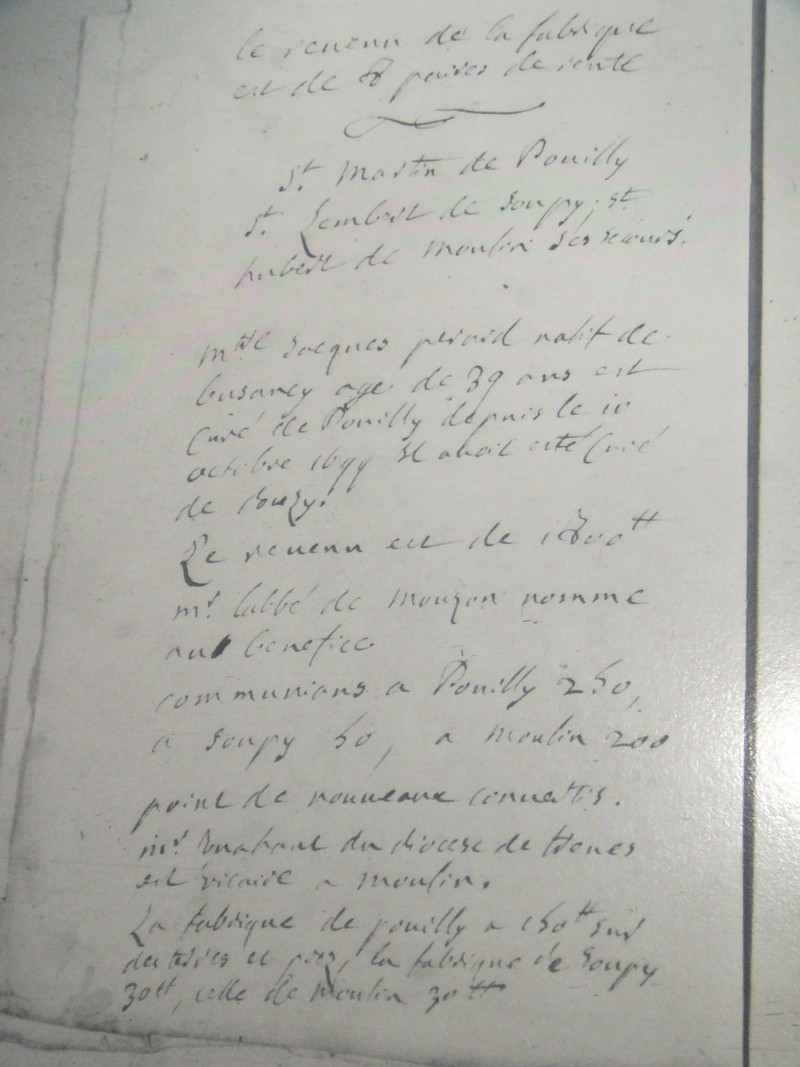 le revenu de la fabrique
est de 8 paires de rente
St Martin de Pouilly
St Lembert de Soupy, St
hubert de Moulin ses secours.
mtre Jacques natif de
busancy age de 39 ans est
Curé de Pouilly depuis le 10
octobre 1699 Il avoit esté Curé
de Douzy.
Le revenu est de 1800tt
mr labbé de Mouzon nomme
au benefice
communians a Pouilly 250,
a Soupy 50, a Moulin 200
point de nouveaux convertis.
mr du diocese de treves
est vicaire a Moulin.
La fabrique de pouilly a 150tt sur
des terres et prez, la fabrique de Soupy
30tt, celle de Moulin 30tt